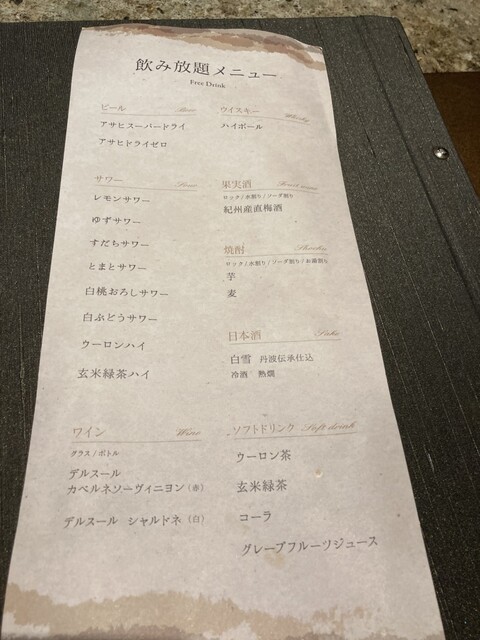 飲み放題メニュー
Free Drink
ビール Beer
アサヒスーパードライ
アサヒドライゼロ
サワー Sour
レモンサワー
ゆずサワー
すだちサワー
とまとサワー
白桃おろしサワー
白ぶどうサワー
ウーロンハイ
玄米緑茶ハイ
ワイン Wine
グラス / ボトル
デルスール
カベルネソーヴィニヨン（赤）
デルスール シャルドネ（白）
ウイスキー Whisky
ハイボール
果実酒 Fruit wine
ロック / 水割り / ソーダ割り
紀州産直梅酒
焼酎 Shochu
ロック / 水割り / ソーダ割り / お湯割り
芋
麦
日本酒 Sake
白雪 丹波伝承仕込
冷酒 熱燗
ソフトドリンク Soft drink
ウーロン茶
玄米緑茶
コーラ
グレープフルーツジュース